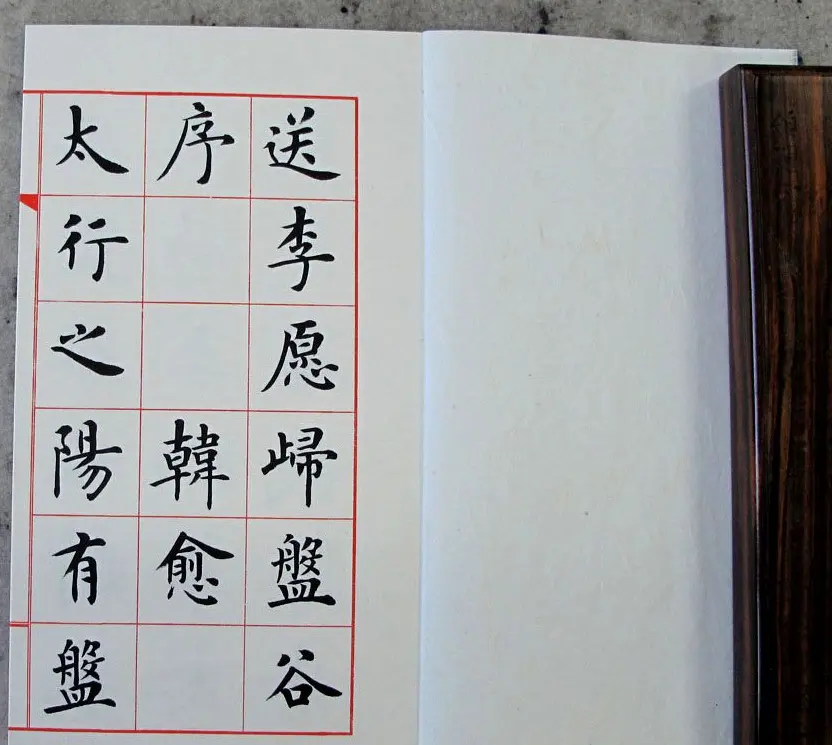 送李愿歸盤谷
序韓愈
太行之陽有盤